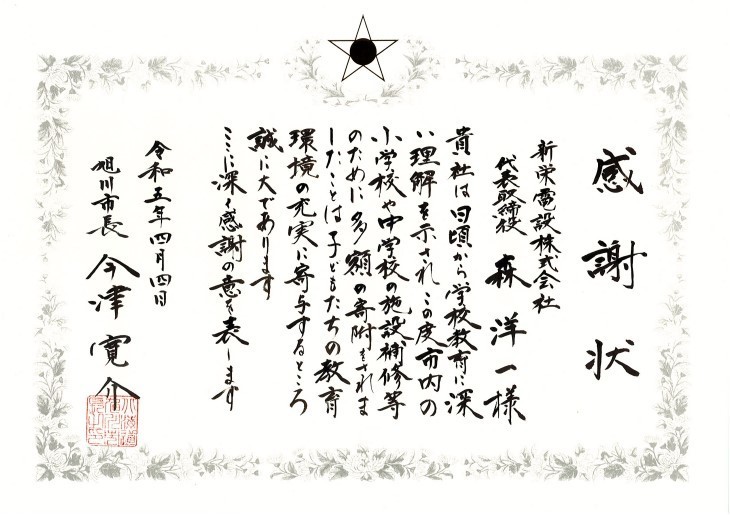 感謝状
新栄電設株式会社
代表取締役 森洋一様
貴社は日頃から学校教育に深
い理解を示されこの度市内の
小学校や中学校の施設補修等
のために多額の寄附をされま
したことは子どもたちの教育
環境の充実に寄与するところ
誠に大であります
ここに深く感謝の意を表します
令和五年四月四日
旭川市長 今津寛介